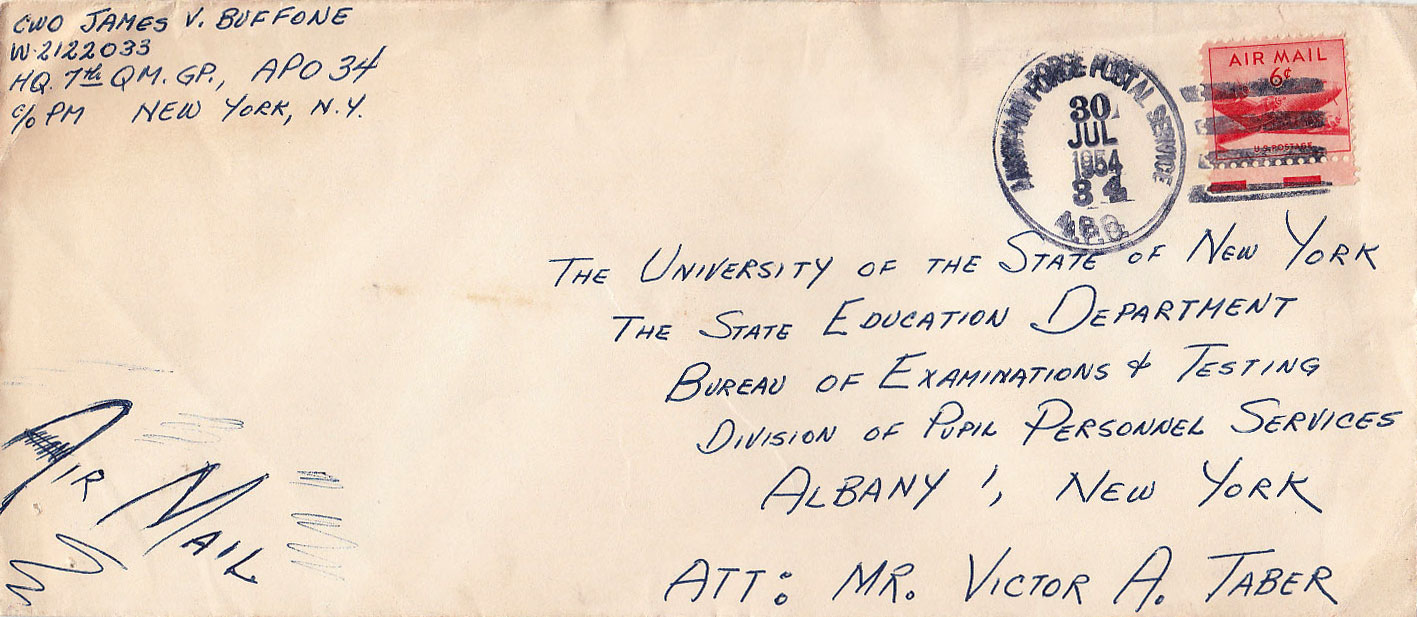 CWO JAMES V. BUFFONE
W-2122033
HQ. 7th QM. GP., APO 34
c/o PM NEW YORK, N.Y.
FORCE POSTAL SERVICE
30
JUL
1954
34
A.P.O.
AIR MAIL
6¢
U.S. POSTAGE
THE UNIVERSITY OF THE STATE OF NEW YORK
THE STATE EDUCATION DEPARTMENT
BUREAU OF EXAMINATIONS & TESTING
DIVISION OF PUPIL PERSONNEL SERVICES
ALBANY 1, NEW YORK
ATT: MR. VICTOR A. TABER
AIR MAIL